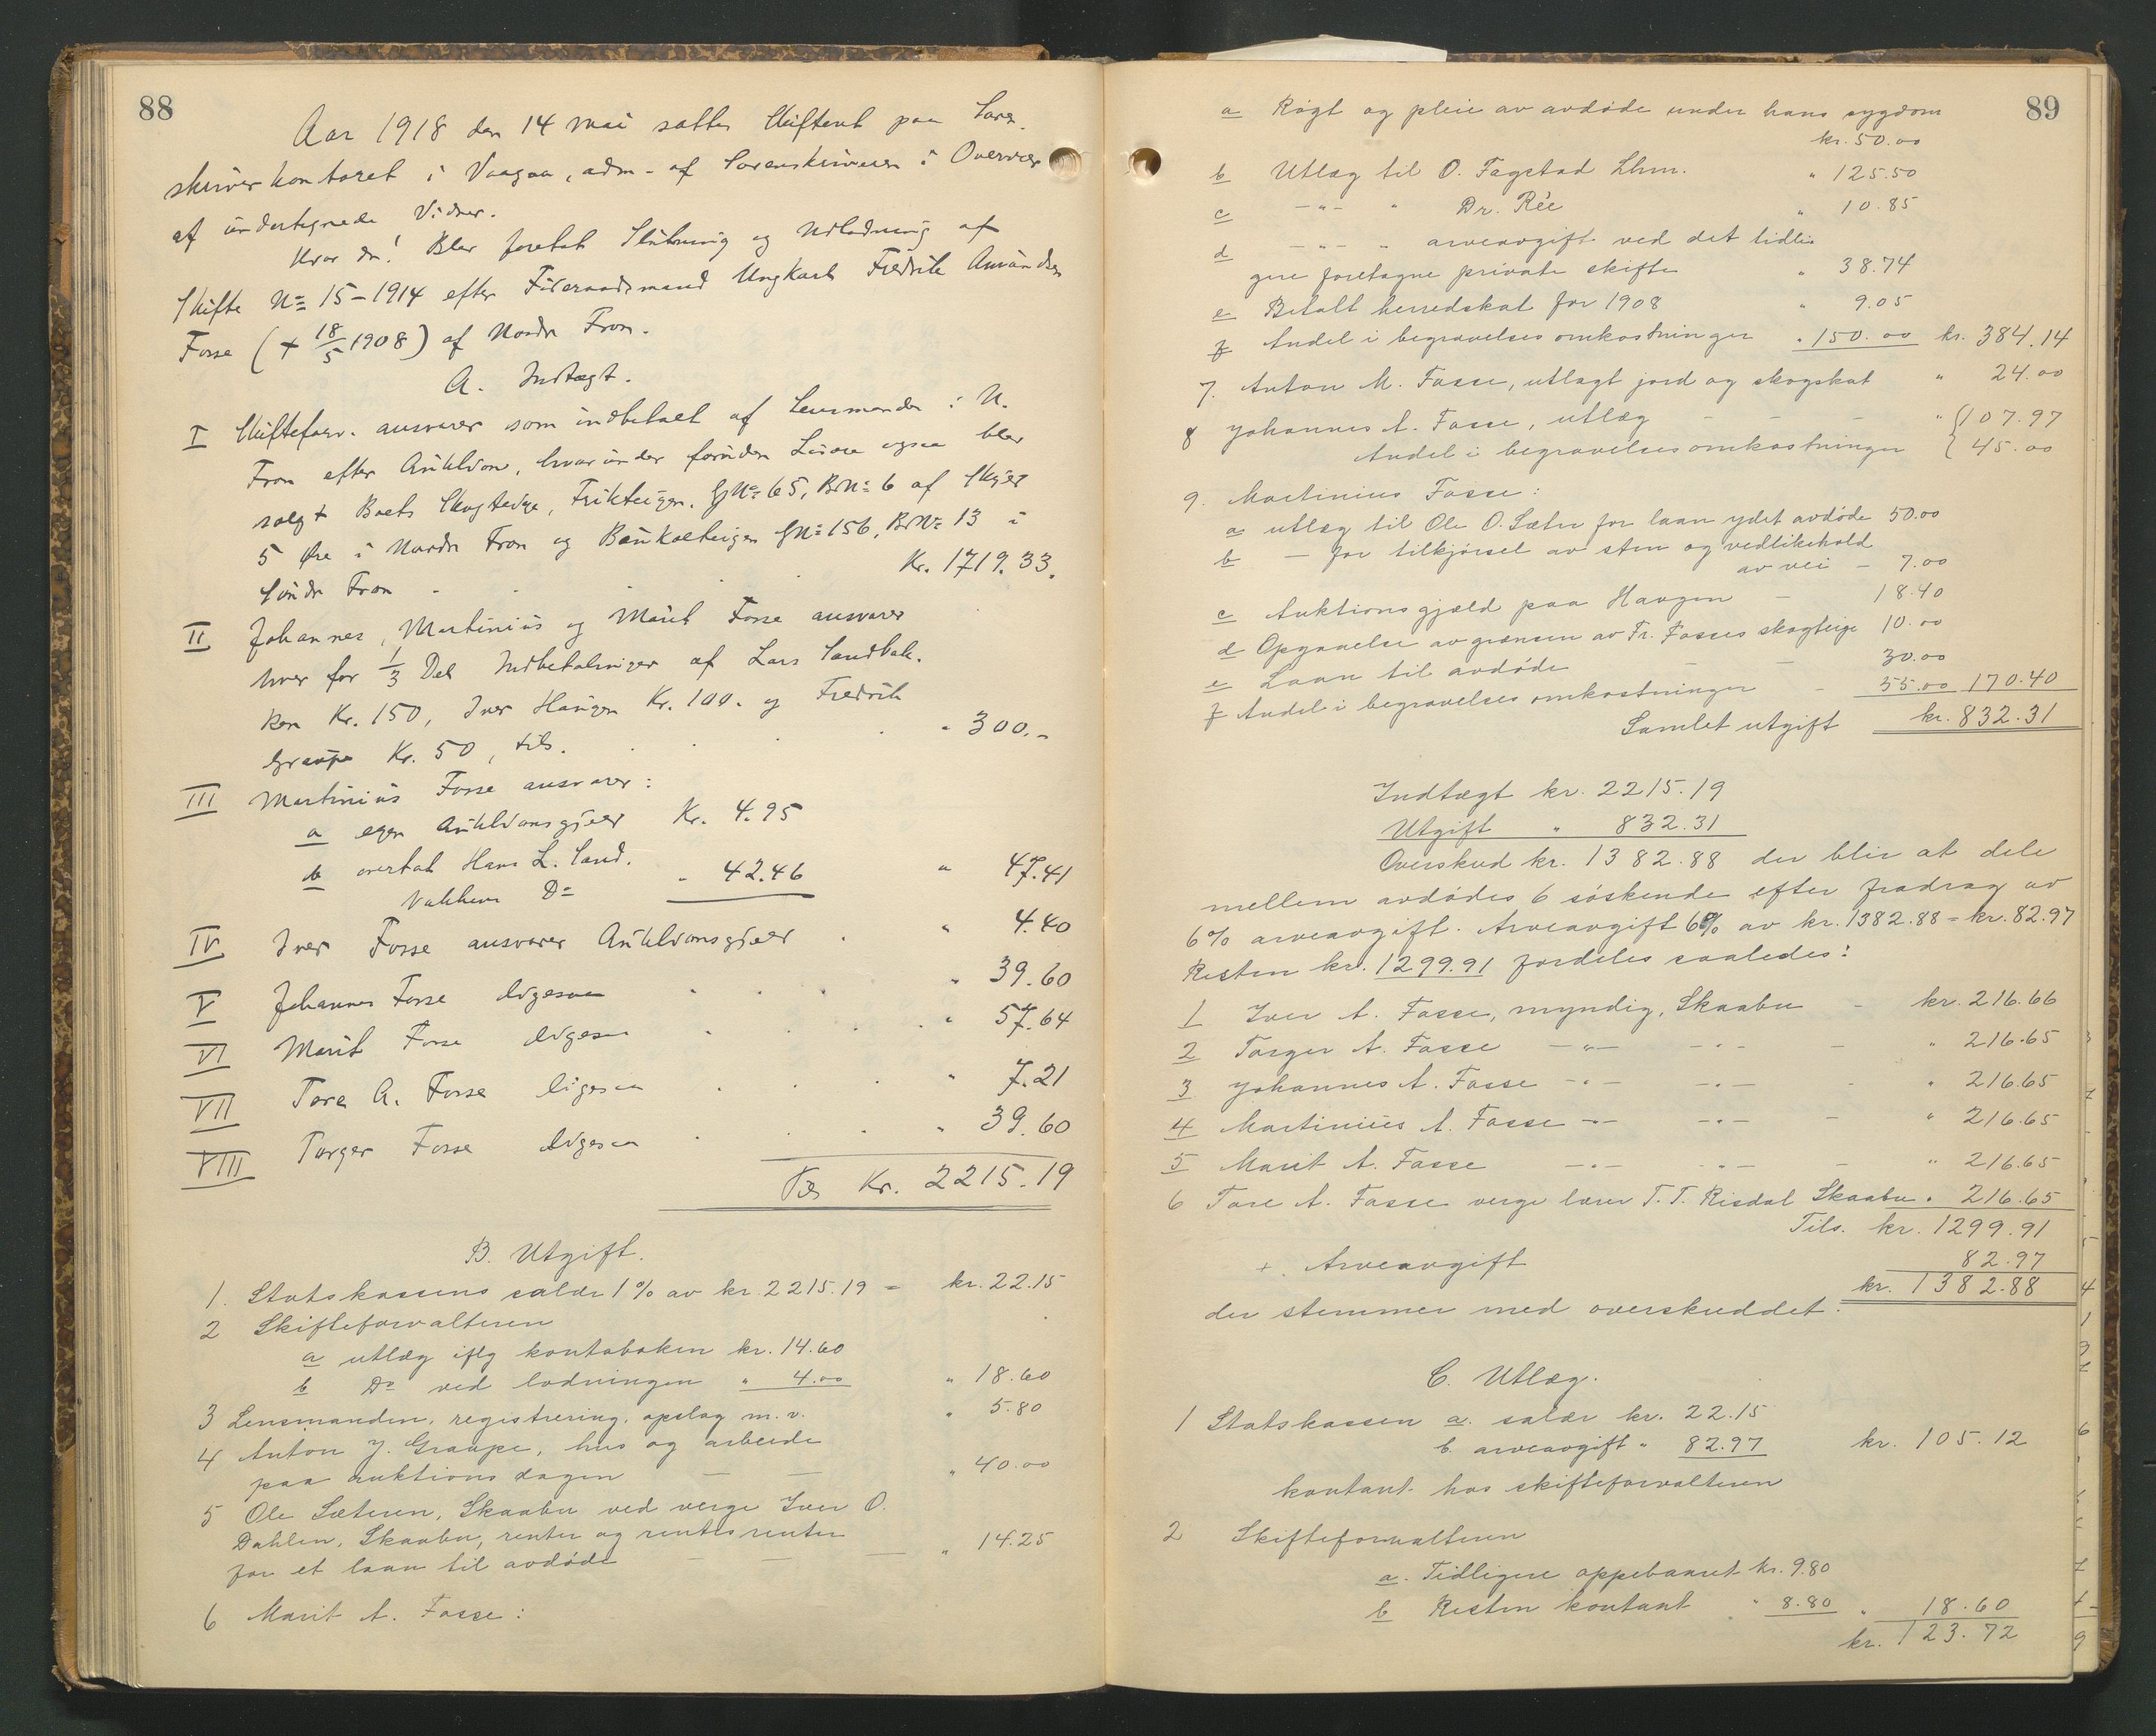 88
Aar 1918 den 14 mai sattes Skifteret paa Soren-
skriverkontoret i Vaagaa, adm. af Sorenskriveren i Overvær
af undertegnede Vidner.
Hvor da! Blev foretat Slutning og Utlodning af
Skifte No 15-1914 efter Føderaadsmand Ungkarl Fredrik Amundsen
Fosse (+ 18/5 1908) af Nordre Fron.
A. Indtægt.
I Skifteforv. ansvarer som indbetalt af Lensmanden i N.
Fron efter Auktion, hvorunder foruden Løsøre ogsaa blev
solgt Boets Skogteige, Frikteigen, GNo 65, BrNo 6 af Skyld
5 Øre i Nordre Fron og Baukolteigen GNo 156, BrNo 13 i
Søndre Fron . . . Kr. 1719.33.
II Johannes, Martinius og Marit Fosse ansvarer
hver for 1/3 Del Indbetalinger af Lars Sandbak-
ken Kr. 150, Iver Haugen Kr. 100. og Fredrik
Graupe Kr. 50, tils. . . . " 300.-
III Martinius Fosse ansvarer:
a egen Auktionsgjeld Kr. 4.95
b overtat Hans L. Sand-
vakken Do " 42.46 " 47.41
IV Iver Fosse ansvarer Auktionsgjeld . " 4.40
V Johannes Fosse ligesaa . . . " 39.60
VI Marit Fosse ligesaa . . . " 57.64
VII Tore A. Fosse ligesaa . . . " 7.21
VIII Torger Fosse ligesaa . . . " 39.60
Tils Kr. 2215.19
B. Utgift.
1. Statskassens salær 1% av kr. 2215.19 = kr. 22.15
2 Skifteforvalteren
a utlæg iflg kontoboken kr. 14.60
b Do ved lodningen " 4.00 " 18.60
3 Lensmanden, registrering, opslag m.v. " 5.80
4 Anton J. Graupe, hus og arbeide
paa auktionsdagen — — " 40.00
5 Ole Sæteren, Skaabu ved verge Iver O.
Dahlen, Skaabu, renter og rentes renter
for et laan til avdøde — — — " 14.25
6 Marit A. Fosse:
89
a Røgt og pleie av avdøde under hans sygdom
kr. 50.00
b Utlæg til O. Fagstad Lhm. " 125.50
c —"— " Dr. Rée " 10.85
d —"— " arveavgift ved det tidli-
gere foretagne private skifte " 38.74
e Betalt herredskat for 1908 " 9.05
f Andel i begravelsesomkostninger " 150.00 kr. 384.14
7. Anton M. Fosse, utlagt jord og skogskat " 24.00
8 Johannes A. Fosse, utlæg — — — " { 107.97
Andel i begravelsesomkostninger { 45.00
9. Martinius Fosse:
a utlæg til Ole O. Sæter for laan ydet avdøde 50.00
b — for tilkjørsel av sten og vedlikehold
av vei — 7.00
c Auktionsgjæld paa Haugen — 18.40
d Opgaaelse av grænsen av Fr. Fosses skogteige 10.00
e Laan til avdøde — — 30.00
f Andel i begravelsesomkostninger — 55.00 170.40
Samlet utgift kr. 832.31
Indtægt kr. 2215.19
Utgift " 832.31
Overskud kr. 1382.88 der blir at dele
mellem avdødes 6 søskende efter fradrag av
6% arveavgift. Arveavgift 6% av kr. 1382.88 = kr. 82.97
Resten kr. 1299.91 fordeles saaledes:
1 Iver A. Fosse, myndig, Skaabu — kr. 216.66
2 Torger A. Fosse —"— —"— — " 216.65
3 Johannes A. Fosse —"— —"— - " 216.65
4 Martinius A. Fosse —"— —"— — " 216.65
5 Marit A. Fosse —"— —"— — " 216.65
6 Tore A. Fosse verge lærer T. T. Risdal Skaabu " 216.65
Tils. kr. 1299.91
+ Arveavgift 82.97
kr. 1382.88
der stemmer med overskuddet.
C. Utlæg.
1 Statskassen a. salær kr. 22.15
b. arveavgift " 82.97 kr. 105.12
kontant hos skifteforvalteren
2 Skifteforvalteren
a. Tidligere oppebaaret kr. 9.80
b Resten kontant " 8.80 " 18.60
kr. 123.72